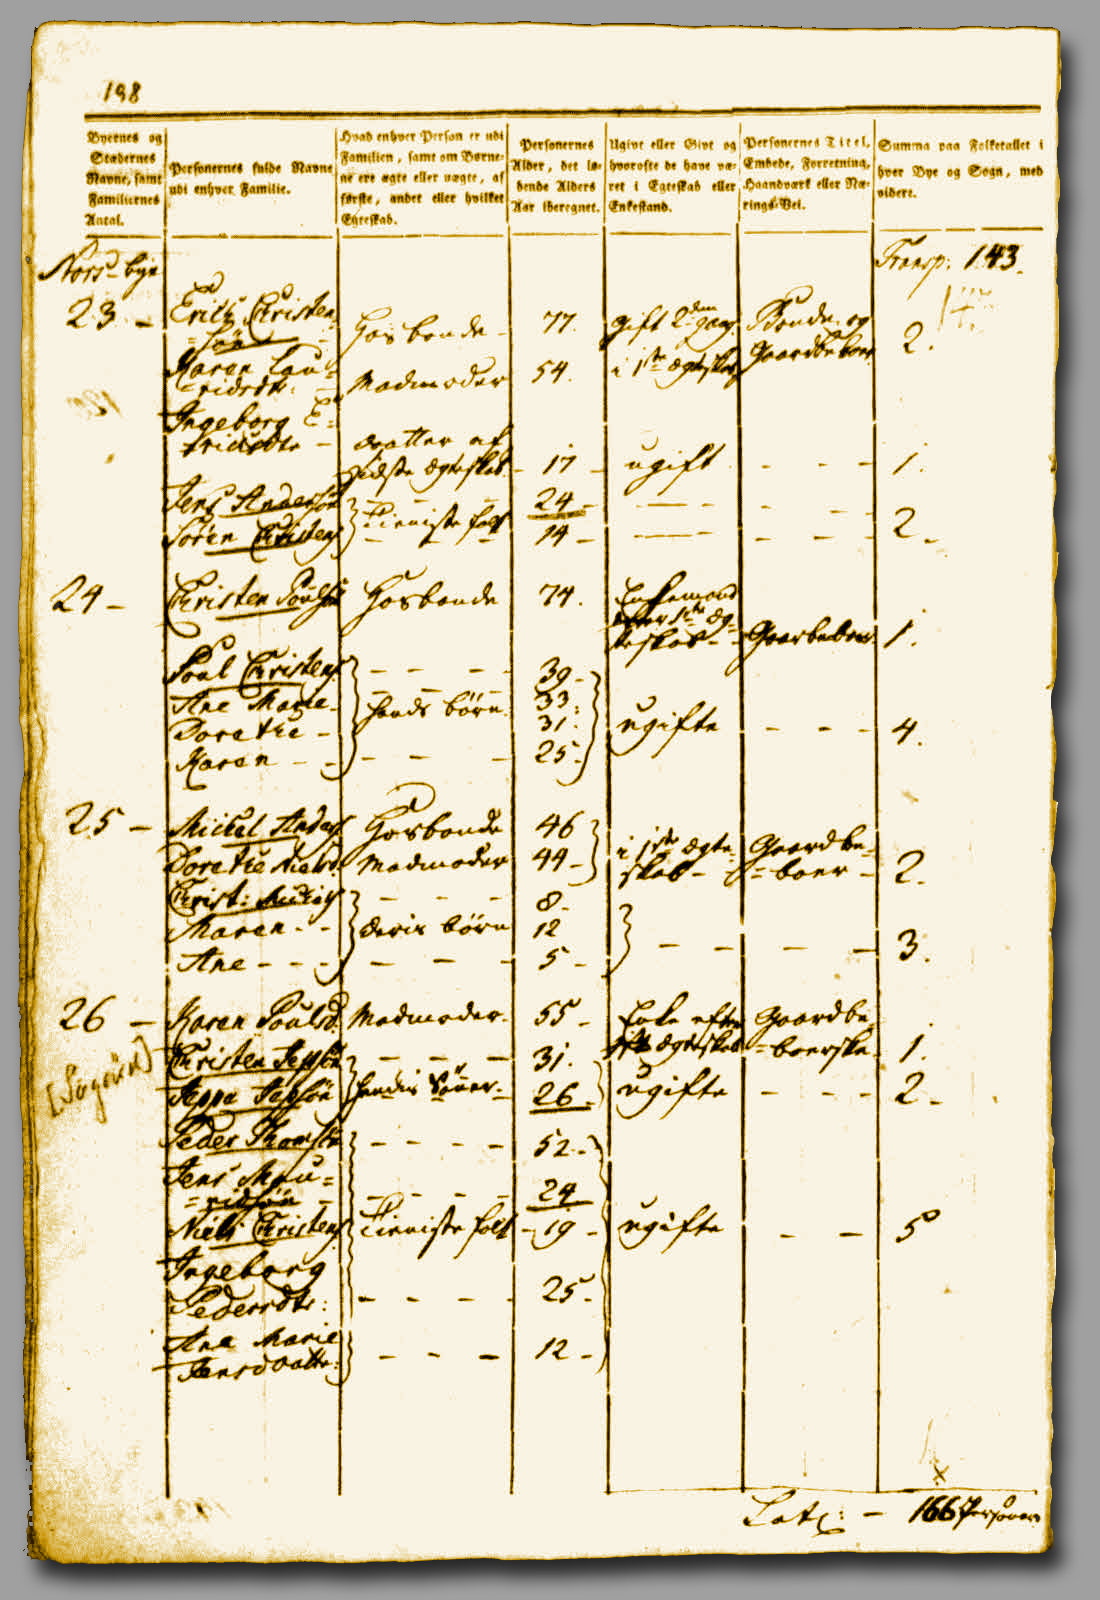 198
Byernes og Stædernes Navne, samt Familiernes Antal.
Personernes fulde Navne udi enhver Familie.
Hvad enhver Person er udi Familien, samt om Børnene ere ægte eller uægte, af første, andet eller hvilket Egteskab.
Personernes Alder, det løbende Alders Aar iberegnet.
Ugivt eller Givt og hvorofte de have været i Egteskab eller Enkestand.
Personernes Titel, Embede, Forretning, Haandværk eller Nærings-Vei.
Summa paa Folketallet i hver Bye og Sogn, med videre.
Nors-bye
Transp: 143.
23 - Erich Christen= Hosbonde - 77. gift 2den gang Bonde og
=søn i 1ste Ægteskab Gaardbeboer 2.
Karen Lau= Madmoder 54.
=ridsdtr:
Ingeborg E=
=richsdtr - datter af
sidste Ægteskab - 17 - ugift - - - 1.
Jens Andersøn 24 -
Tieniste folk 2 -
Sören Christens 14 -
24 - Christen Poulsøn Hosbonde 74. Enkemand
efter 1ste Æg=
teskab - - Gaarbeboer 1.
Poul Christens - - - 39 -
Ane Marie - hands børn. 33.
Dorethe - 31. ugifte - - - 4.
Karen - - - - - 25 -
25 - Michel Anders Hosbonde 46 i 1ste Ægte= Gaardbe=
Dorethe Nielsd. Madmoder 44 - skab - =boer - 2.
Christ: Michels - - - 8 -
Maren - - deris børn 12
Ane - - - - - - 5 - - - - - 3.
26 - Karen Poulsd. Madmoder - 55 - Enke efter Gaardbe
1ste Ægteskab =boerske. 1.
Christen Jepsøn - - - 31.
Jeppe Jepsøn hendis Sönner - 26 - ugifte - - - 2 -
Peder Thomsøn - - - - 52 -
Jens Mou=
=ridsøn - - - - - 24
Niels Christens Tieniste folk - 19 - ugifte - - 5
Ingeborg
Pedersdtr: - - - - 25 -
Ane Marie
Jensdatter: - - - 12 -
Lat: - 166 Personer